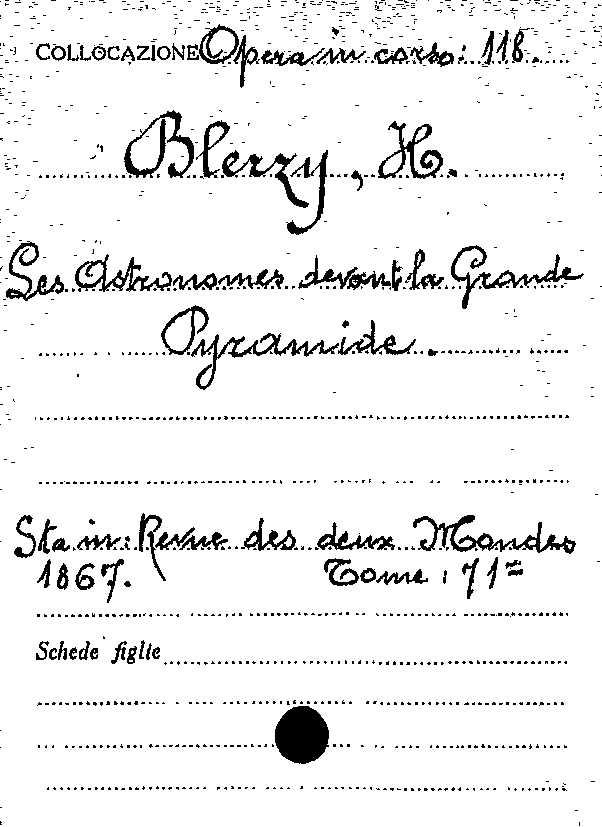 COLLOCAZIONE Opera in corso: 118.
Blerzy, H.
Les Astronomes devant la Grande
Pyramide.
Sta in: Revue des deux Mondes
1867. Tome: 71=
Schede figlie